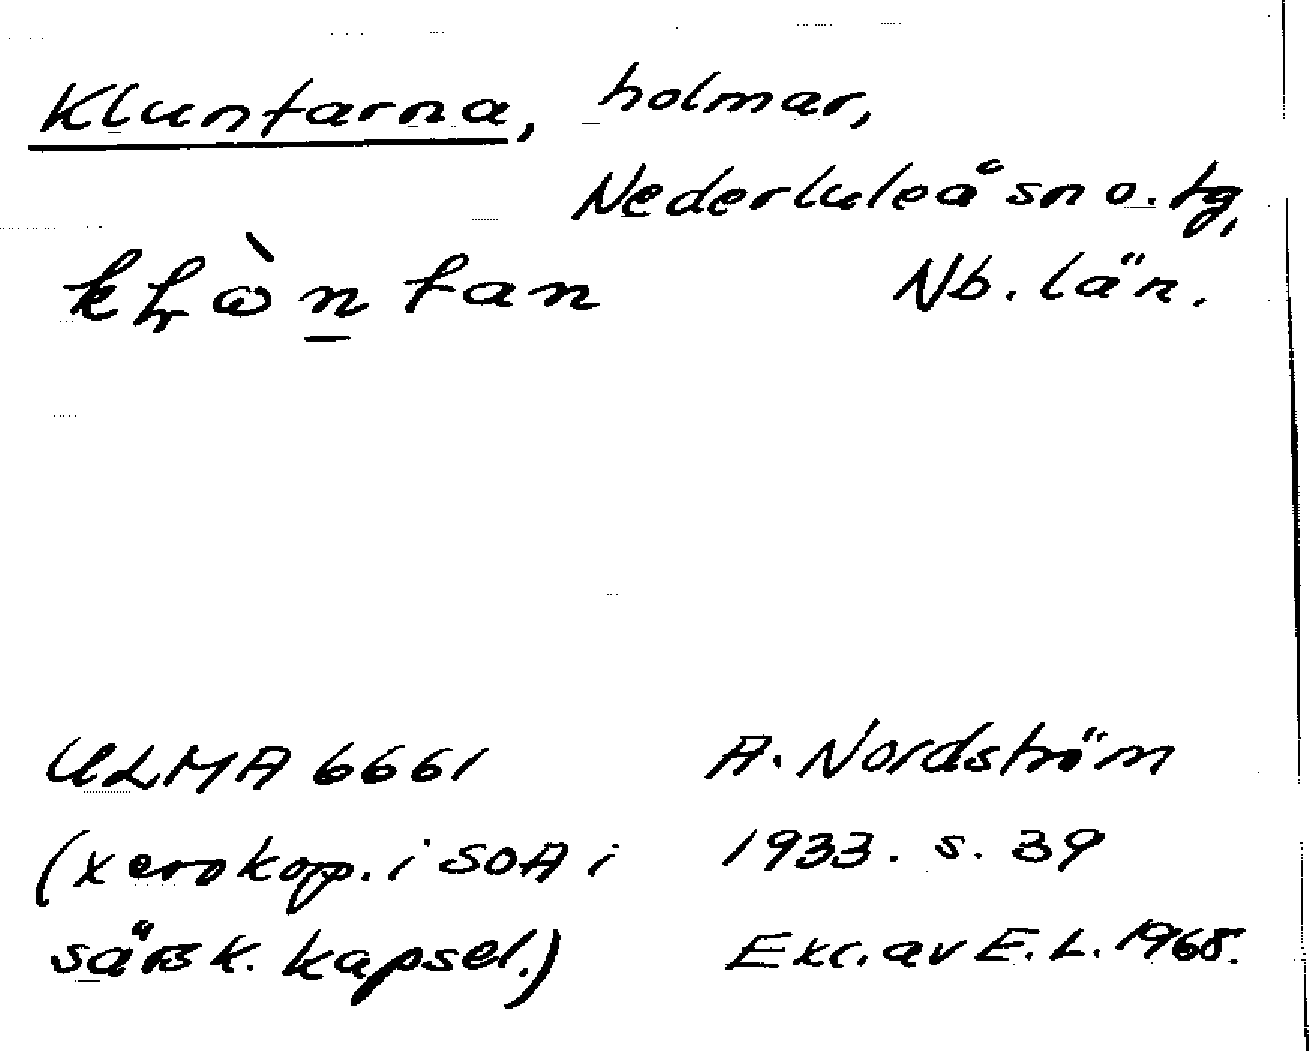 Kluntarna, holmar,
Nederluleå sn o. tg,
Nb. län.
ULMA 6661
(xerokop. i SOA i
särsk. kapsel.)
A. Nordström
1933. s. 39
Exc. av E. L. 1968.